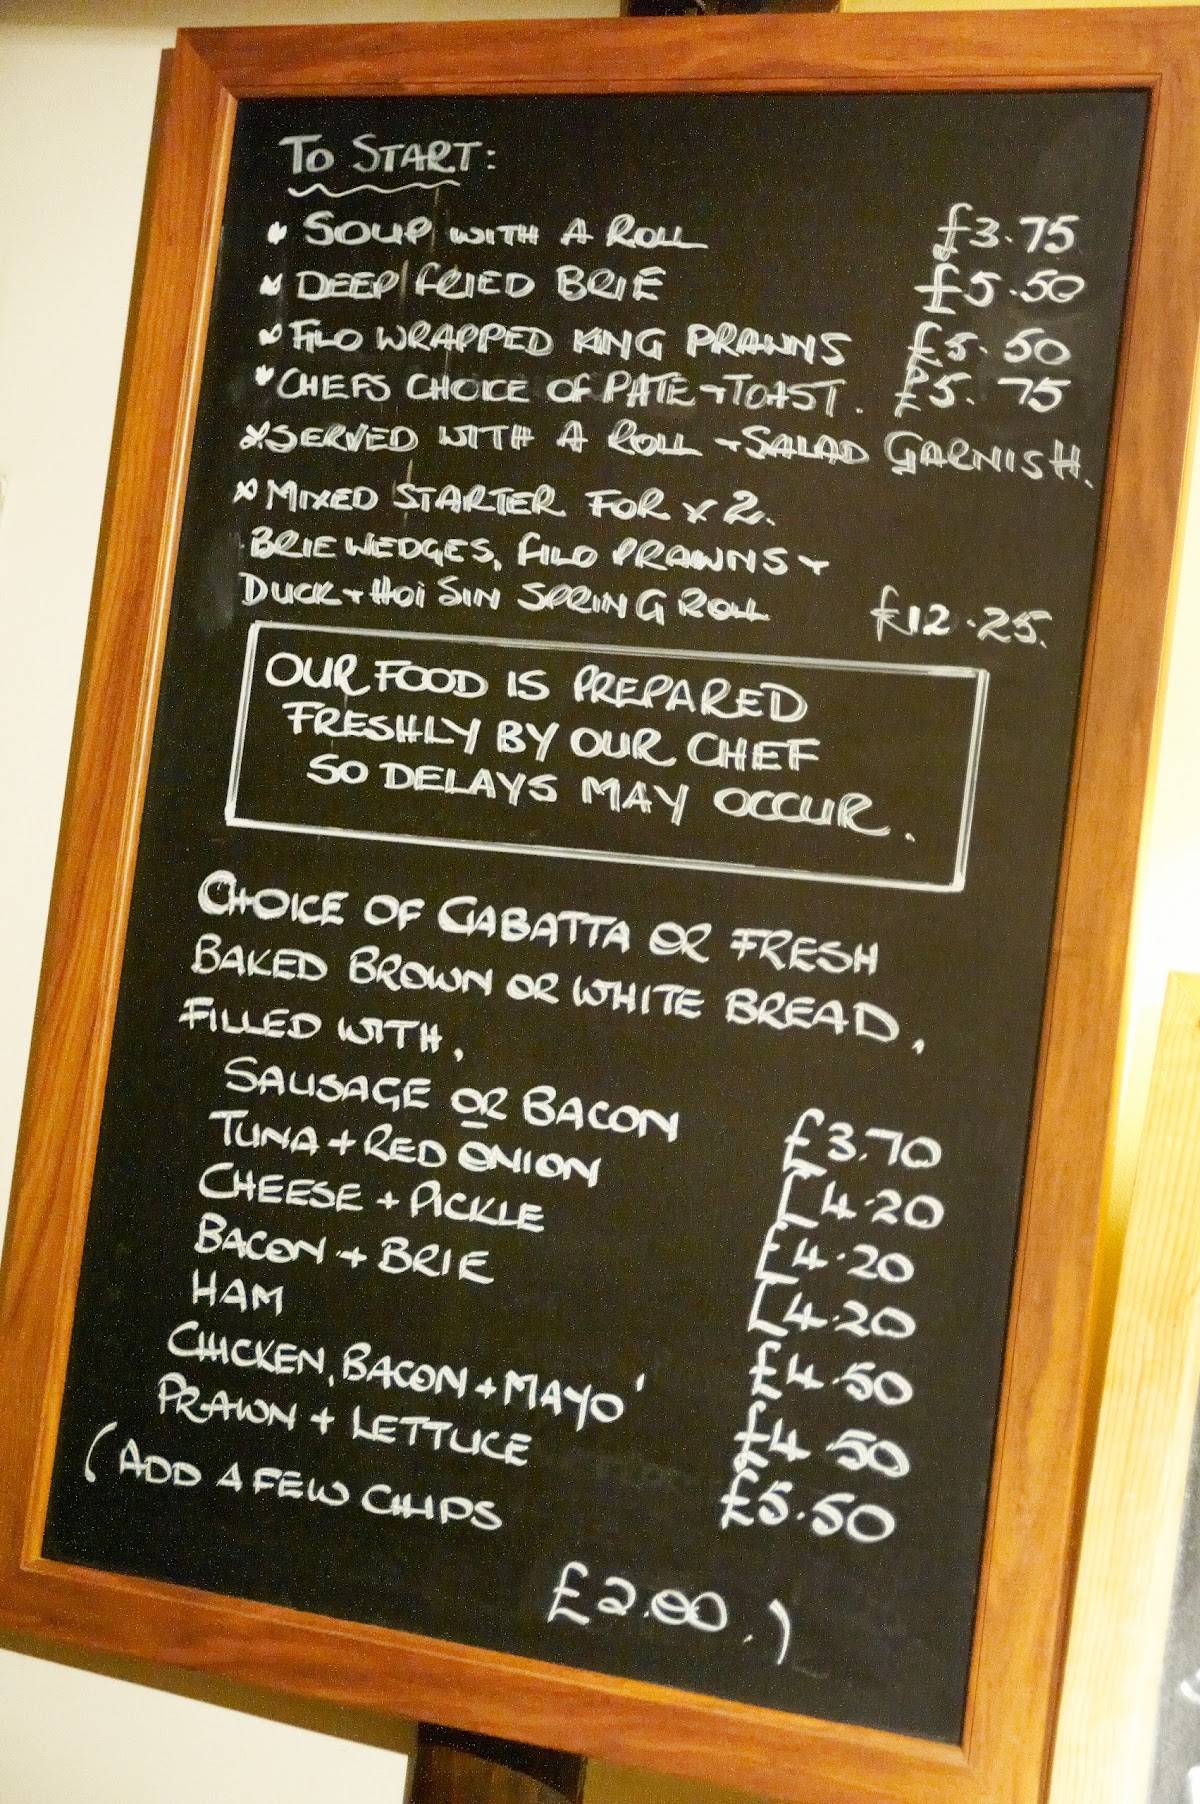 TO START:
* SOUP WITH A ROLL £3.75
* DEEP FRIED BRIE £5.50
* FILO WRAPPED KING PRAWNS £5.50
* CHEFS CHOICE OF PATE + TOAST. £5.75
* SERVED WITH A ROLL + SALAD GARNISH.
* MIXED STARTER FOR x 2.
BRIE WEDGES, FILO PRAWNS +
DUCK + HOI SIN SPRING ROLL £12.25.
OUR FOOD IS PREPARED
FRESHLY BY OUR CHEF
SO DELAYS MAY OCCUR.
CHOICE OF CIABATTA OR FRESH
BAKED BROWN OR WHITE BREAD,
FILLED WITH,
SAUSAGE OR BACON £3.70
TUNA + RED ONION £4.20
CHEESE + PICKLE £4.20
BACON + BRIE £4.20
HAM £4.50
CHICKEN, BACON + MAYO' £4.50
PRAWN + LETTUCE £5.50
(ADD A FEW CHIPS
£2.00.)